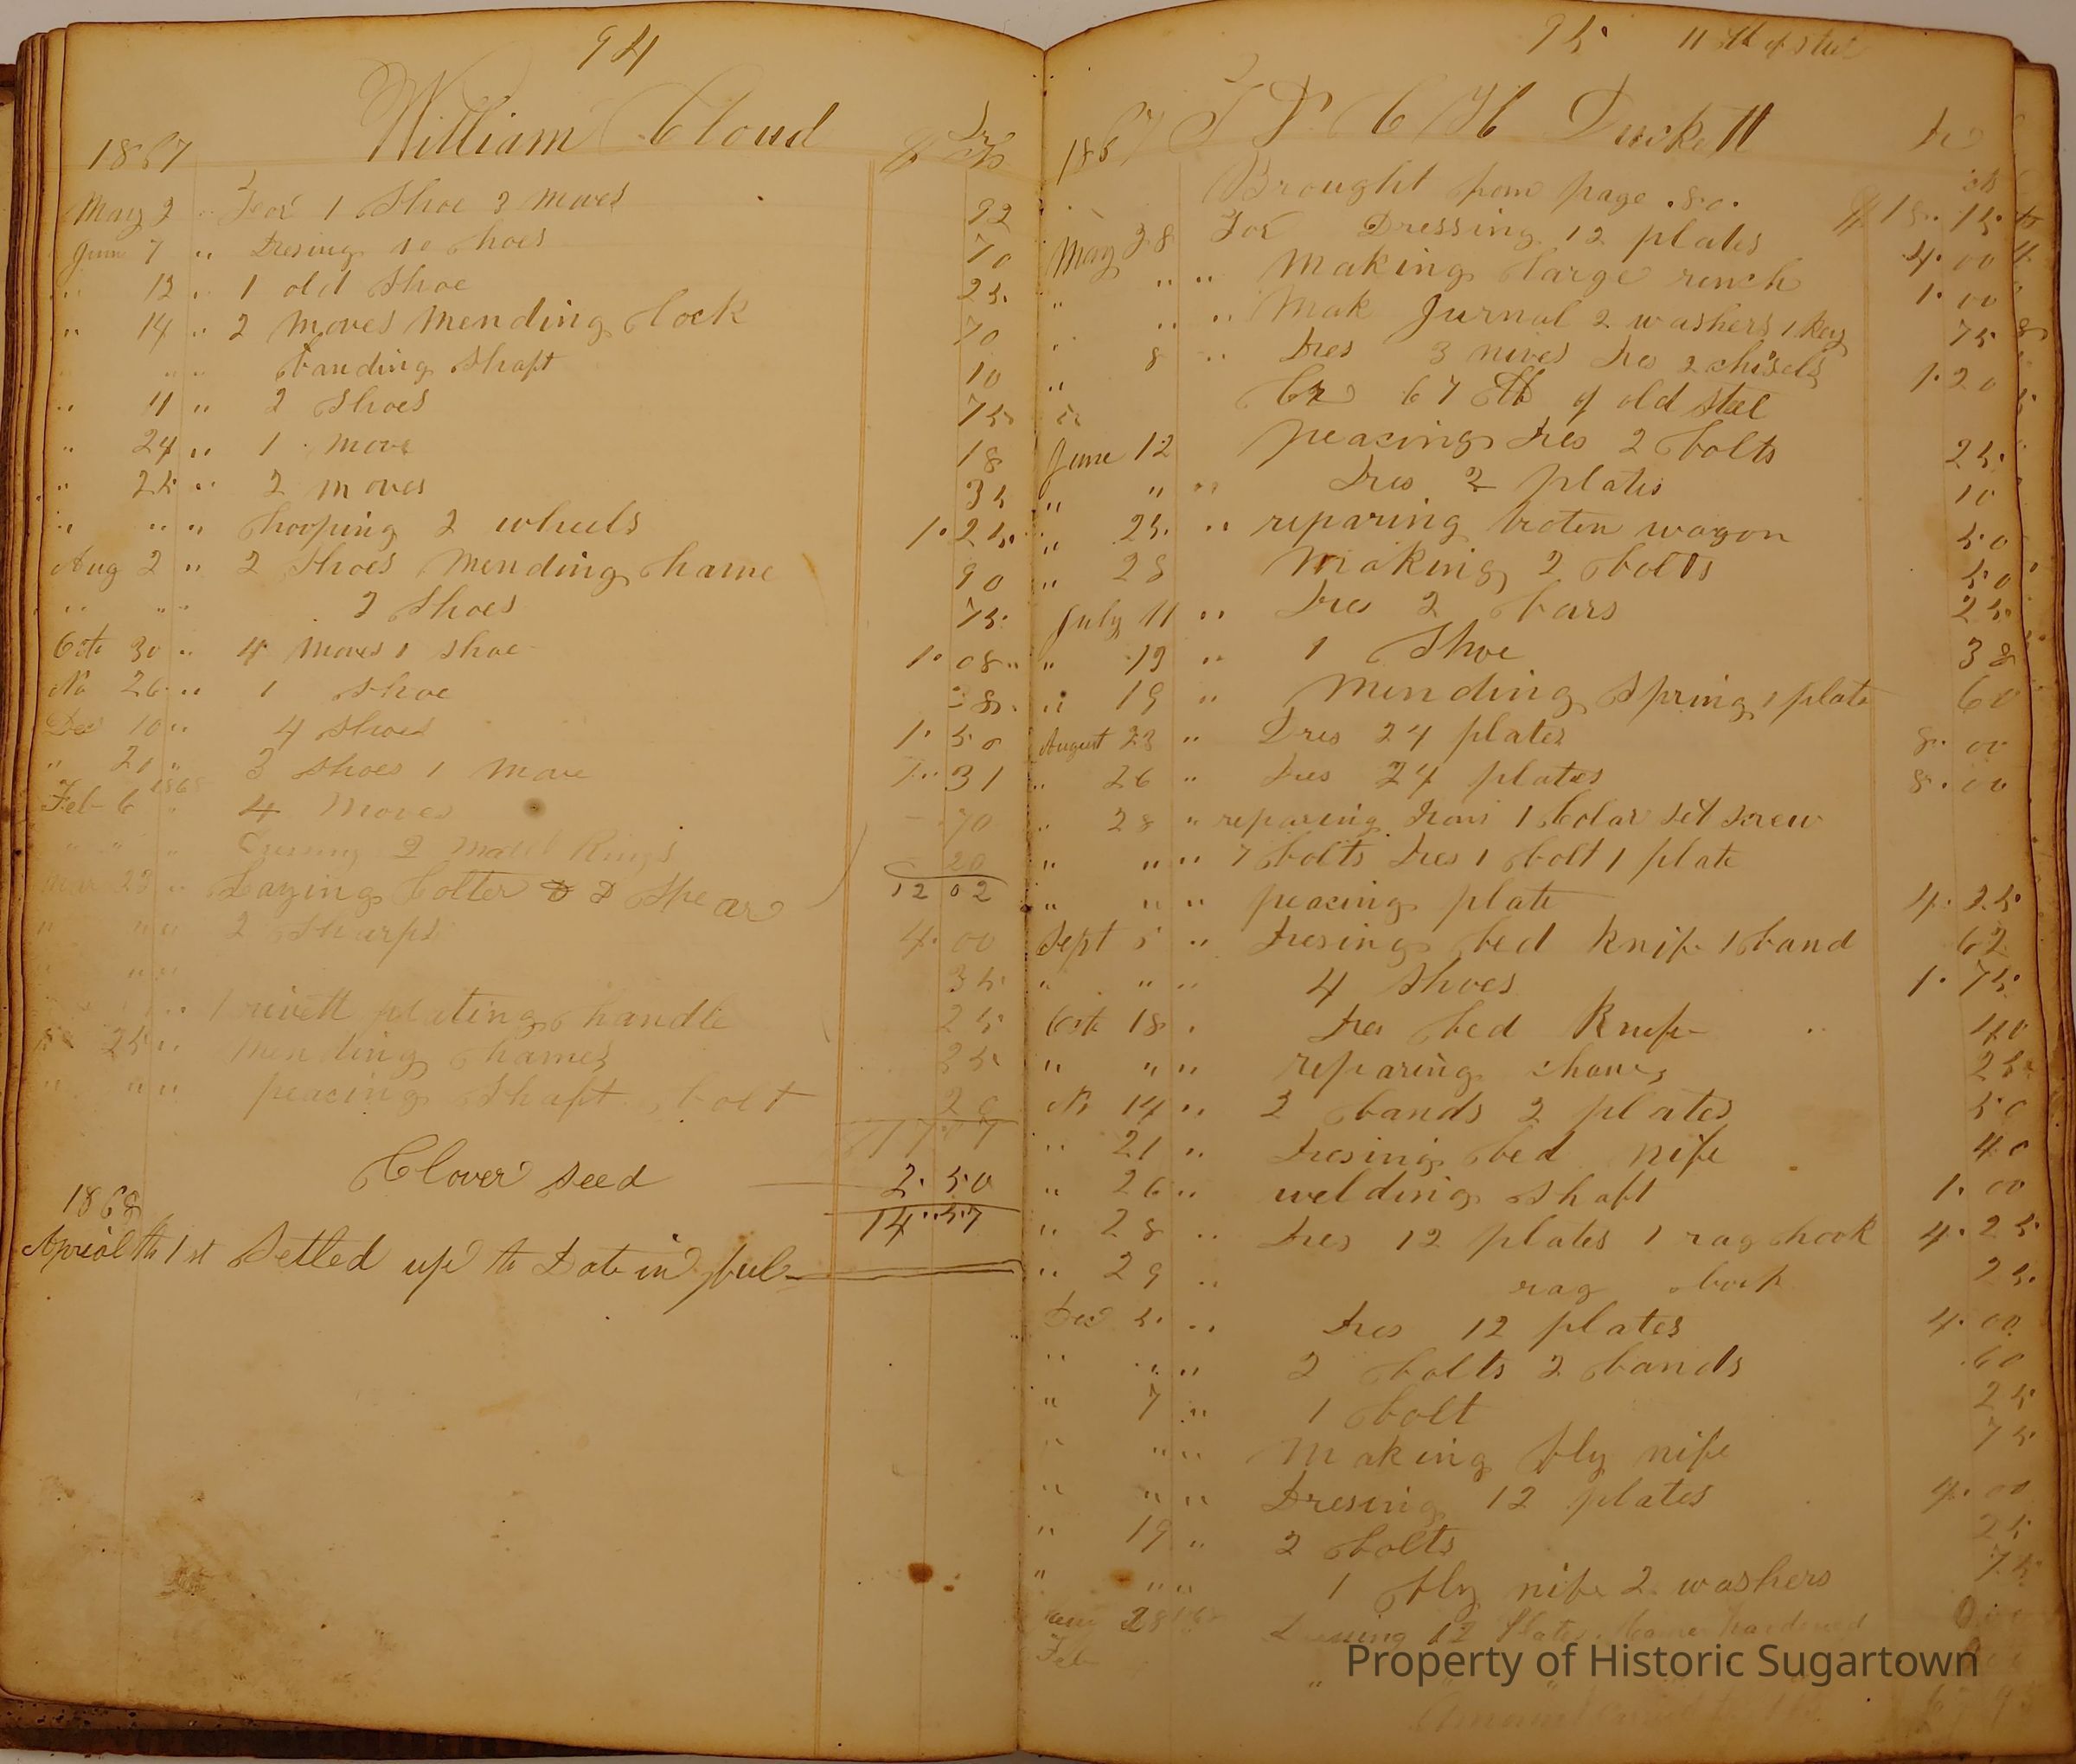 94
William Cloud
1867 Dr
May 2 " For 1 Shoe 3 moves 92
June 7 " Dresing 10 shoes 70
" 13 " 1 old Shoe 25
" 14 " 2 moves mending lock 70
" " " banding shaft 10
" 11 " 2 shoes 75
" 24 " 1 move 18
" 25 " 2 moves 35
" " " hooping 2 wheels 1.25
Aug 2 " 2 Shoes Mending hame 90
" " " 2 Shoes 75
Octo 30 " 4 Moves 1 shoe 1.08
No 26 " 1 shoe 38
Dec 10 " 4 shoes 1.50
" 21 " 3 shoes 1 move 1.31
Feb 6 1868 " 4 Moves 70
" " " 2 Rings 20
12 02
Mar 23 " Laying Colter & Spear
" " " 2 Sharps 4.00
" " " 35
" " 1 rivett plating handle 25
25 " mending hames 25
" " " peacing shaft bolt 20
17.07
Clover seed 2.50
14.57
1868
Aprial th 1st Setled up to Date in ful
95 11 lb of steel
1867 S P C H Duckett Dr
Brought from page 80 $18.15
May 28 For Dressing 12 plates 4.00
" " " Making large rench 1.00
" " " Mak Jurnal 2 washers 1 key 75
" 8 " Dres 3 nives Dres 2 chisels 1.20
" Cr 67 lb of old steel
June 12 peacing Dres 2 bolts 25
" " " Dres 2 plates 10
" 25 " reparing broten wagon 50
" 28 Making 2 bolts 50
July 11 " Dres 2 bars 25
" 19 " 1 Shoe 38
" 19 " Mending Spring 1 plate 60
August 23 " Dres 24 plates 8.00
" 26 " Dres 24 plates 8.00
" 28 " reparing Iron 1 Colar set screw
" " " 7 bolts Dres 1 bolt 1 plate
" " " peacing plate 4.25
Sept 5 " Dresing bed Knife 1 band 62
" " " 4 shoes 1.75
Octo 18 " Dres bed Knife 40
" " " reparing 25
No 14 " 2 bands 2 plates 50
" 21 " Dresing bed nife 40
" 26 " welding shaft 1.00
" 28 " Dres 12 plates 1 rag hook 4.25
" 29 " rag hook 25
Dec 5 " Dres 12 plates 4.00
" " " 2 bolts 2 bands 60
" 7 " 1 bolt 25
" " " Making fly nife 75
" " " Dresing 12 plates 4.00
" 19 " 2 bolts 25
" " " 1 fly nife 2 washers 75
28 1868 Dressing 12 Plates hardened
Feb
Property of Historic Sugartown